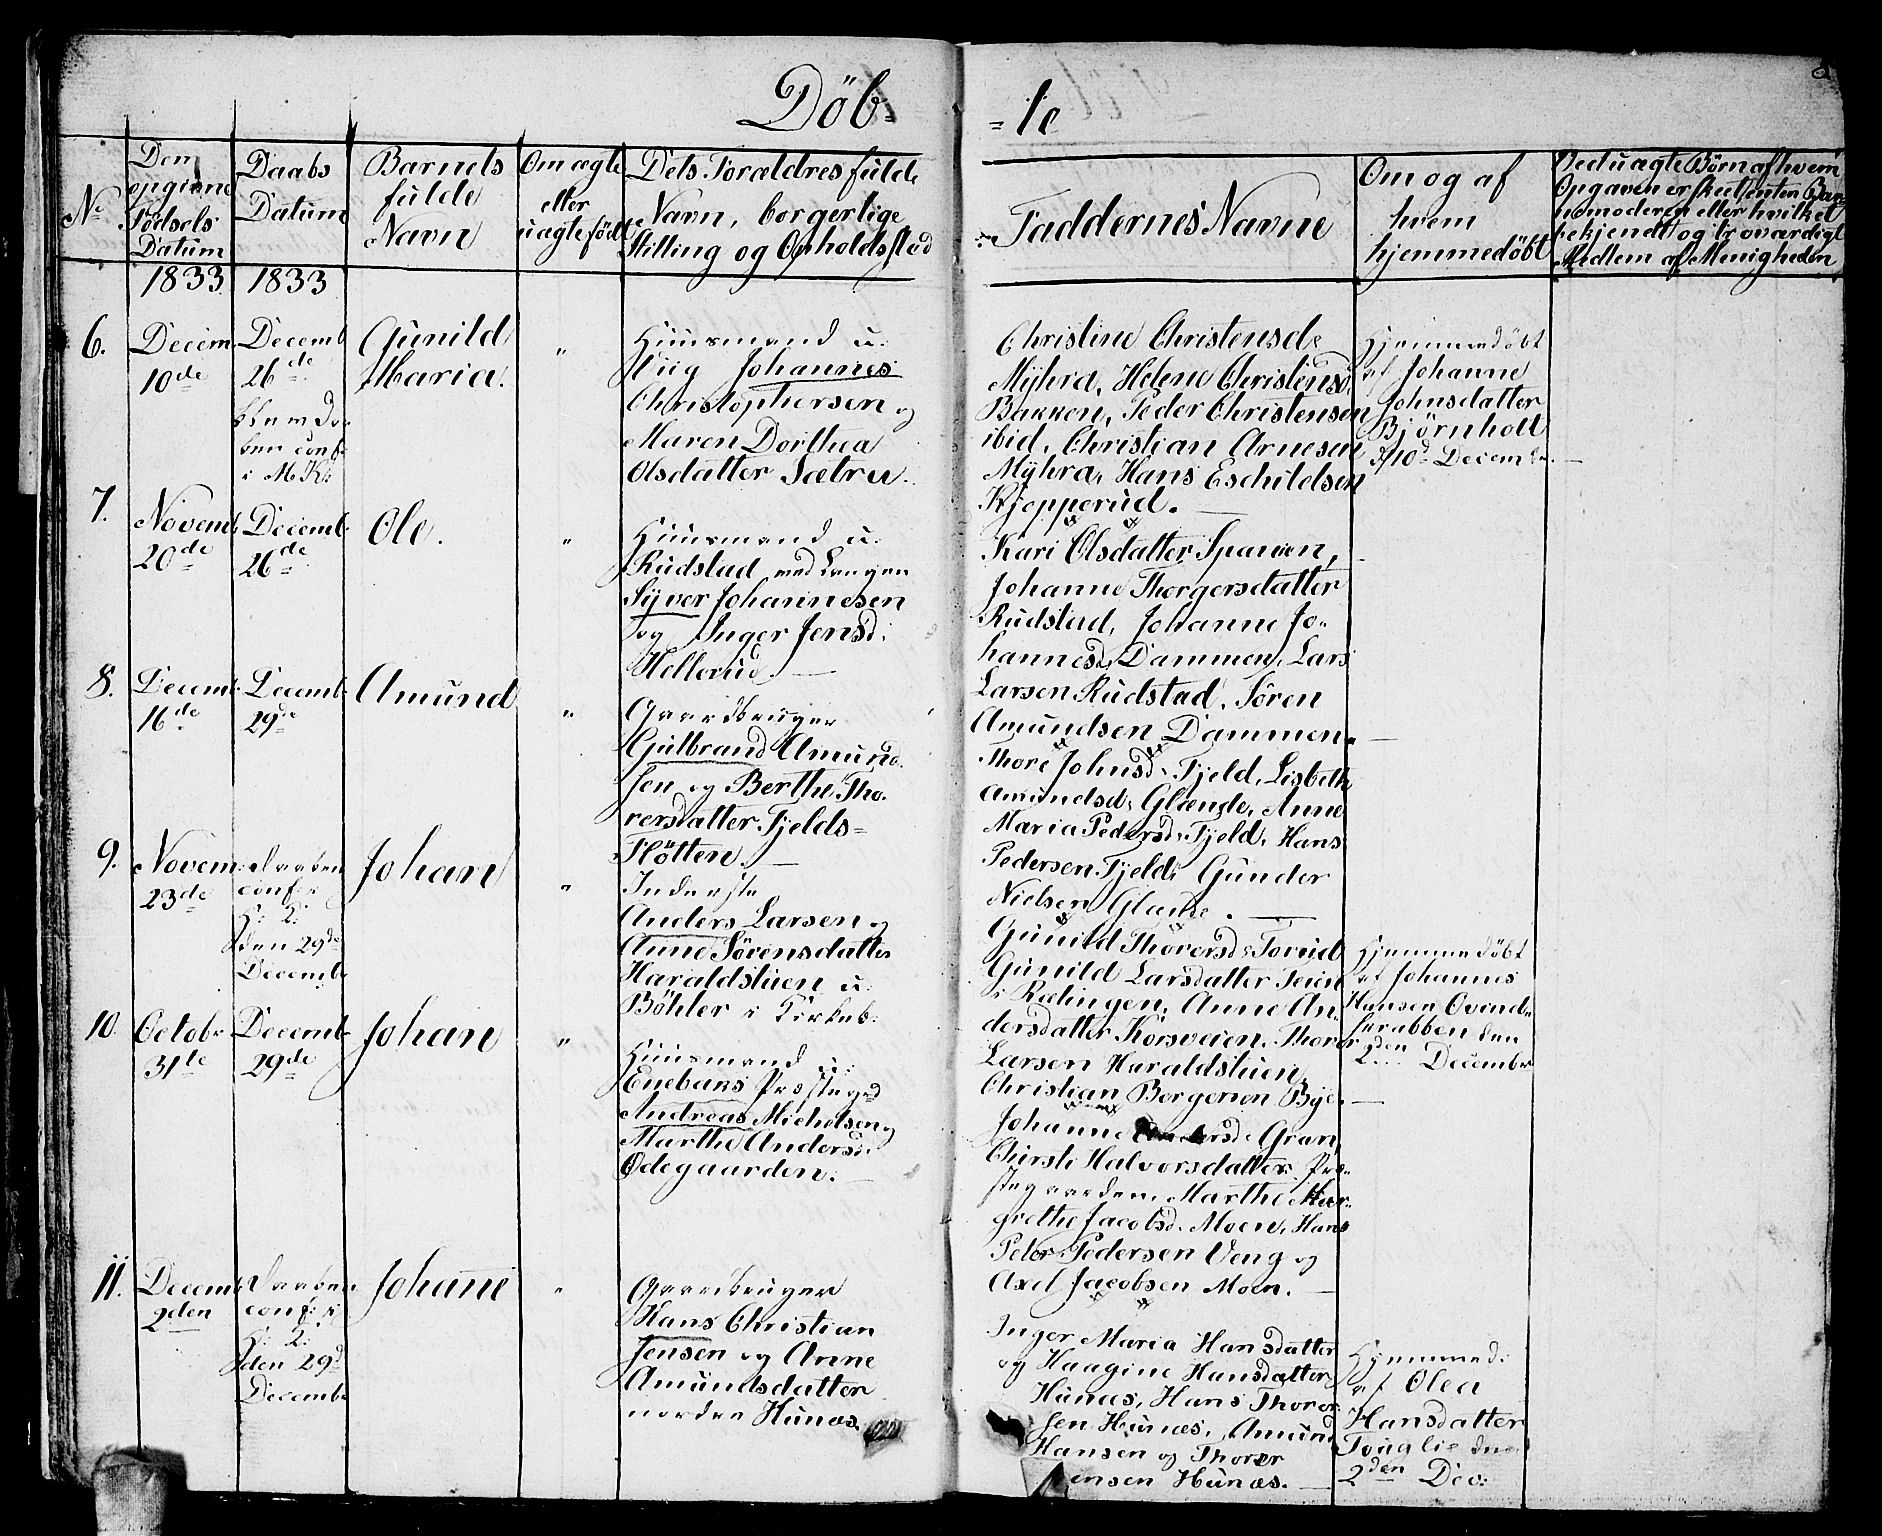 Döb-
-te
No
Den opgivne Födsels Datum
Daabs Datum
Barnets fulde Navn
Om ægte eller uægte födt
Dets Forældres fulde Navn, borgerlige Stilling og Opholdsstæd
Faddernes Navne
Om og af hvem hjemmedöbt
Ved uægte Börn af hvem Opgaven er skeet, enten Barnemoderen eller hvilket bekjendt og troværdigt Medlem af Menigheden
1833
1833
6.
Decem:
10de
Decemb
26de
i M K:
Gunild
Maria.
"
Huusmand u:
Johannes
Christophersen og
Maren Dorthea
Olsdatter Sætre.
Christine Christensd:
Myhra, Helene Christensd,
Bakken, Peder Christensen
ibid, Christian Arnesen
Myhra, Hans Eschildsen
Kjepperud.
Hjemmedöbt
af Johanne
Johnsdatter
Björnholt
d 10d Decembr.
7.
Novemb:
20de
Decemb:
26de
Ole.
"
Huusmand u:
Rudstad med Lengen
Syver Johannesen
og Inger Jensd:
Hellerud.
Kari Olsdatter Spanien,
Johanne Thorgersdatter
Rudstad, Johanne Jo-
hannesd: Dammen, Lars
Larsen Rudstad, Sören
Amundsen Dammen.
8.
Decemb:
16de
Decemb:
29de
Amund
"
Gaardbruger
Gulbrand Amund
sen og Berthe Tho-
rersdatter Fjelds=
Slötten.
Thore Johnsd: Fjeld, Lisbeth
Amundsd: Glende, Anne
Maria Pedersd: Fjeld, Hans
Pedersen Fjeld, Gunder
Nielsen Glende.
9.
Novem:
23de
Daaben
conf: i
H: 2:
den 29de
Decembr
Johan
"
Inderste
Anders Larsen og
Anne Sörensdatter
Haraldstuen u:
Böhler i Kirkeb:
Gunild Thorersd:
Gunild Larsdatter
i Rælingen, Anne An-
dersdatter Korsveien, Thorer
Larsen Haraldstuen,
Christian Borgersen Bye.
Hjemmedöbt
af Johannes
Hansen
den
2den Decembr
10.
Octobr
31te
Decemb:
29de
Johan
"
Huusmand u:
Enebaks Præstegd
Andreas Michelsen og
Marthe Andersd:
Ödegaarden.
Johanne Andersd: Gran,
Chirsti Halvorsdatter Præ-
stegaarden, Marthe Mar-
grethe Jacobsd: Moen, Hans
Peter Pedersen Veng og
Axel Jacobsen Moen.
11.
Decemb:
2den
Daaben
conf: i
H: 2:
den 29d
Decembr
Johanne
"
Gaardbruger
Hans Christian
Jensen og Anne
Amundsdatter
nordre Hunæs.
Inger Maria Hansdatter
og Haagine Hansdatter
Hunæs, Hans Thorer
sen Hunæs, Amund
Hansen og Thorer
Jensen Hunæs.
Hjemmed:
af Olea
Hansdatter
Tonglie den
2den Dec: